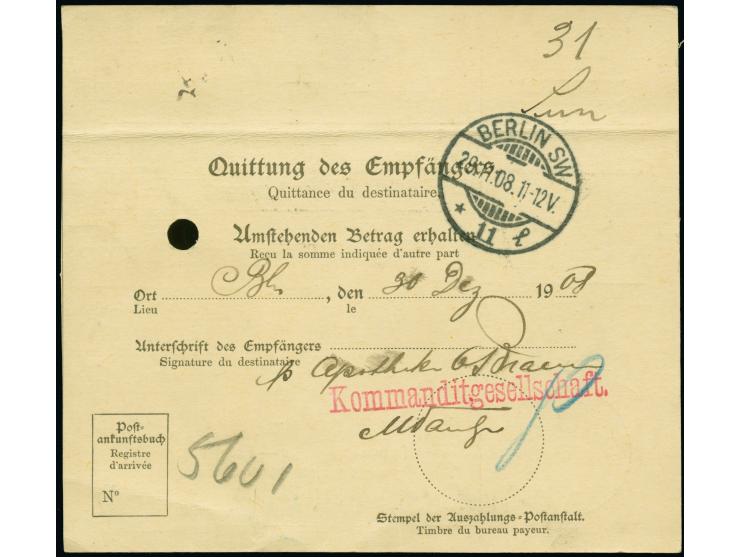 31
BERLIN SW
29.11.08.11-12V.
* 11 l
Quittung des Empfängers.
Quittance du destinataire.
Umstehenden Betrag erhalten
Reçu la somme indiquée d'autre part
Ort Bln. , den 30 Dez 1908
Lieu le
Unterschrift des Empfängers
Signature du destinataire
p Apotheke
Kommanditgesellschaft.
Post-
ankunftsbuch
Registre
d'arrivée
N°
5601
Stempel der Auszahlungs-Postanstalt.
Timbre du bureau payeur.